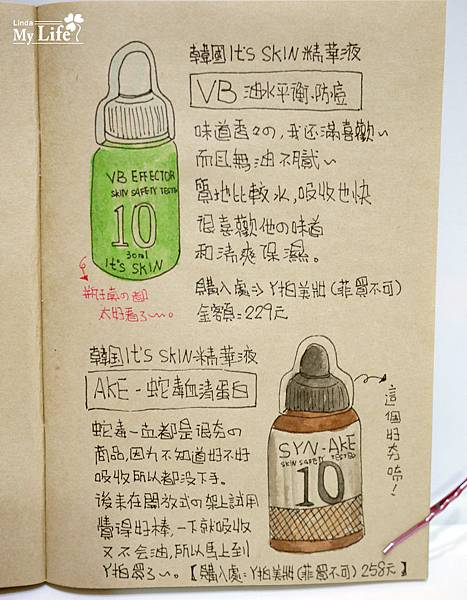 Linda
My Life
韓國It's SKIN精華液
VB 油水平衡.防痘
味道香々の,我还滿喜歡～
而且無油不膩～
質地比較水,吸收也快
很喜歡他の味道
和清爽保濕。
購入處=>Y拍美妝(菲買不可)
金額=229元
VB EFFECTOR
SKIN SAFETY TESTED
10
30ml
It's SKIN
太好看了～。
韓国It's SKIN精華液
AKE-蛇毒血清蛋白
蛇毒一直都是很夯の
商品,因为不知道好不好
吸收所以都沒下手。
後來在開放式の架上試用
覺得好棒,一下就吸收
又不会油,所以馬上到
Y拍買了～。【購入處=Y拍美妝(菲買不可)258元】
SYN-AKE
SKIN SAFETY TESTED
10
這個好夯唷!